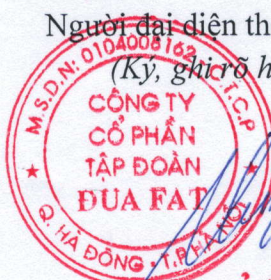 Người đại diện th
(Ký, ghi rõ h
M.S.D.N: 0104008162 C.T.C.P
CÔNG TY
CỔ PHẦN
TẬP ĐOÀN
ĐUA FAT
Q. HÀ ĐÔNG - T.P HÀ NỘI